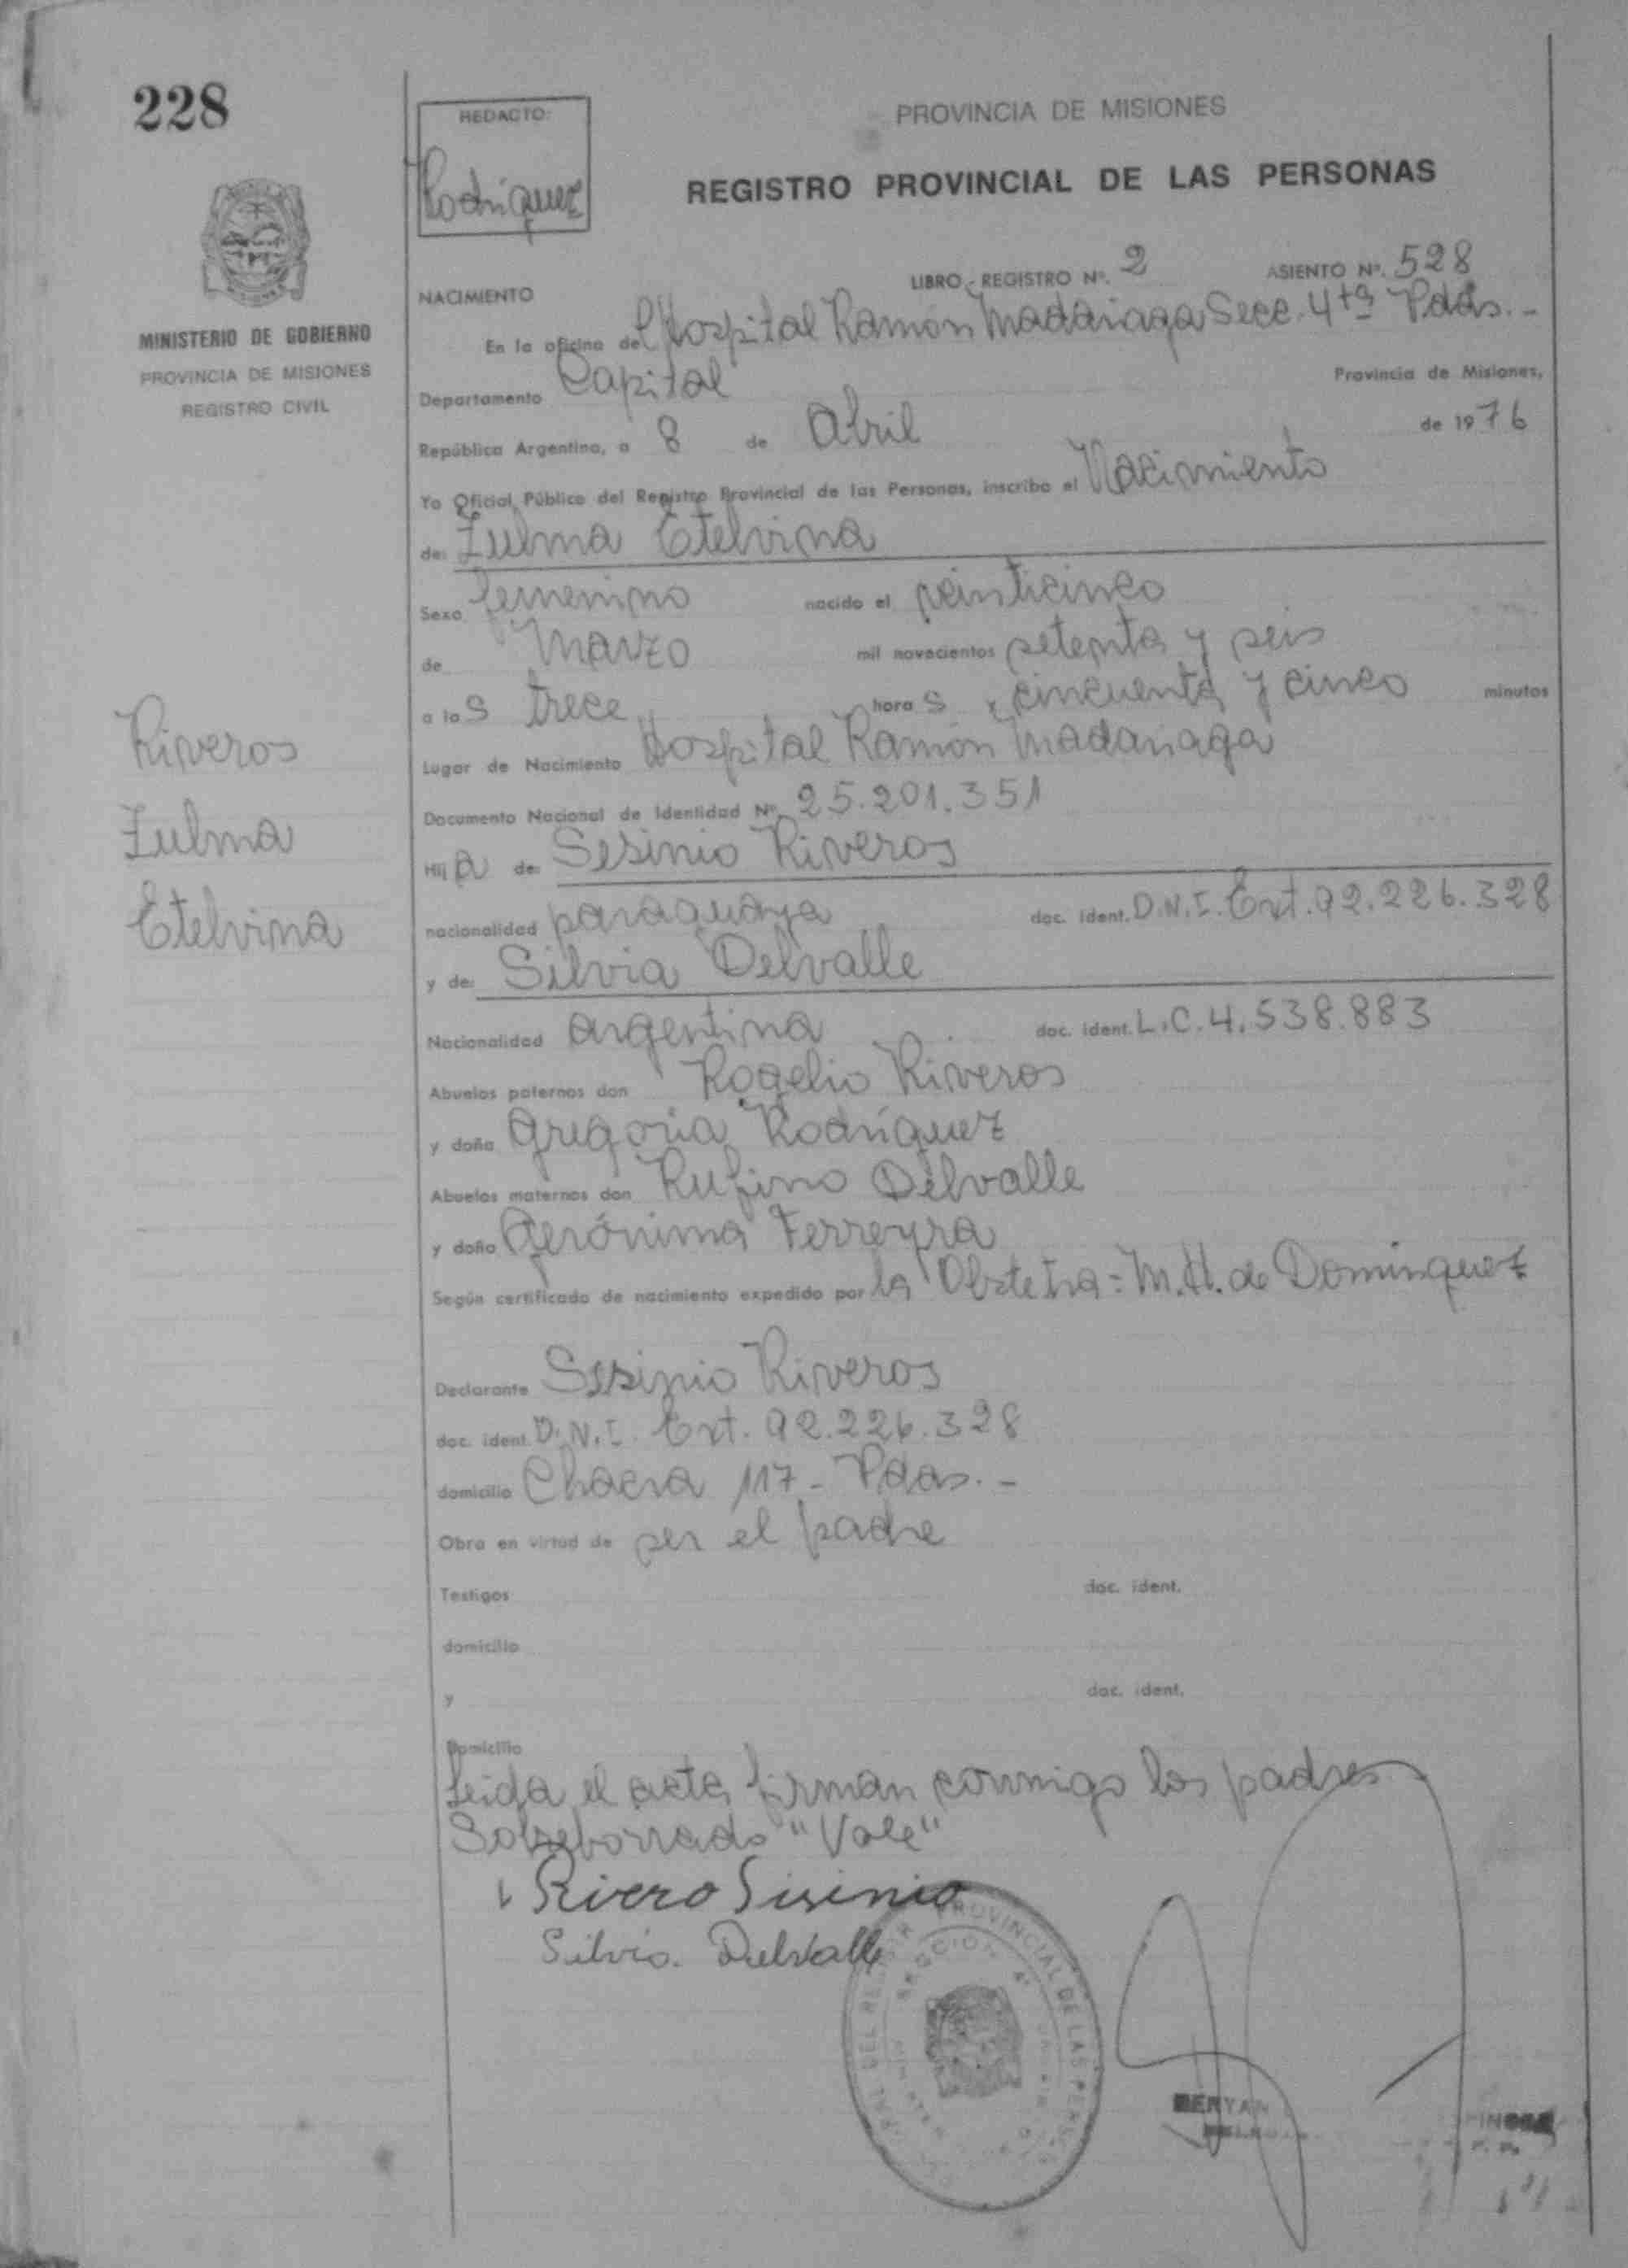 228
REDACTO:
Rodríguez
PROVINCIA DE MISIONES
REGISTRO PROVINCIAL DE LAS PERSONAS
MINISTERIO DE GOBIERNO
PROVINCIA DE MISIONES
REGISTRO CIVIL
LIBRO - REGISTRO Nº. 2 ASIENTO Nº. 528
NACIMIENTO
En la oficina del Hospital Ramón Madariaga Secc. 4ta Pdas. -
Departamento Capital Provincia de Misiones,
República Argentina, a 8 de Abril de 1976
Yo Oficial Público del Registro Provincial de las Personas, inscribo el Nacimiento
de: Zulma Etelvina
Sexo femenino nacido el veinticinco
de Marzo mil novecientos setenta y seis
a las trece horas, cincuenta y cinco minutos
Lugar de Nacimiento Hospital Ramón Madariaga
Documento Nacional de Identidad Nº 25.201.351
Hija de: Sesinio Riveros
nacionalidad paraguaya doc. ident. D.N.I. Ext. 92.226.328
y de: Silvia Delvalle
Nacionalidad argentina doc. ident. L.C. 4.538.883
Abuelos paternos don Rogelio Riveros
y doña Gregoria Rodríguez
Abuelos maternos don Rufino Delvalle
y doña Gerónima Ferreyra
Según certificado de nacimiento expedido por la Obstetra = M.H. de Dominguez
Riveros
Zulma
Etelvina
Declarante Sesinio Riveros
doc. ident. D.N.I. Ext. 92.226.328
domicilio Chacra 117 - Pdas. -
Obra en virtud de ser el padre
Testigos doc. ident.
domicilio
y doc. ident.
Domicilio
Leida el acta, firman conmigo los padres
Sobreborrado "Vale"
Rivero Sisinio
Silvia. Delvalle
PROVINCIAL DE LAS
SECCION 4ª